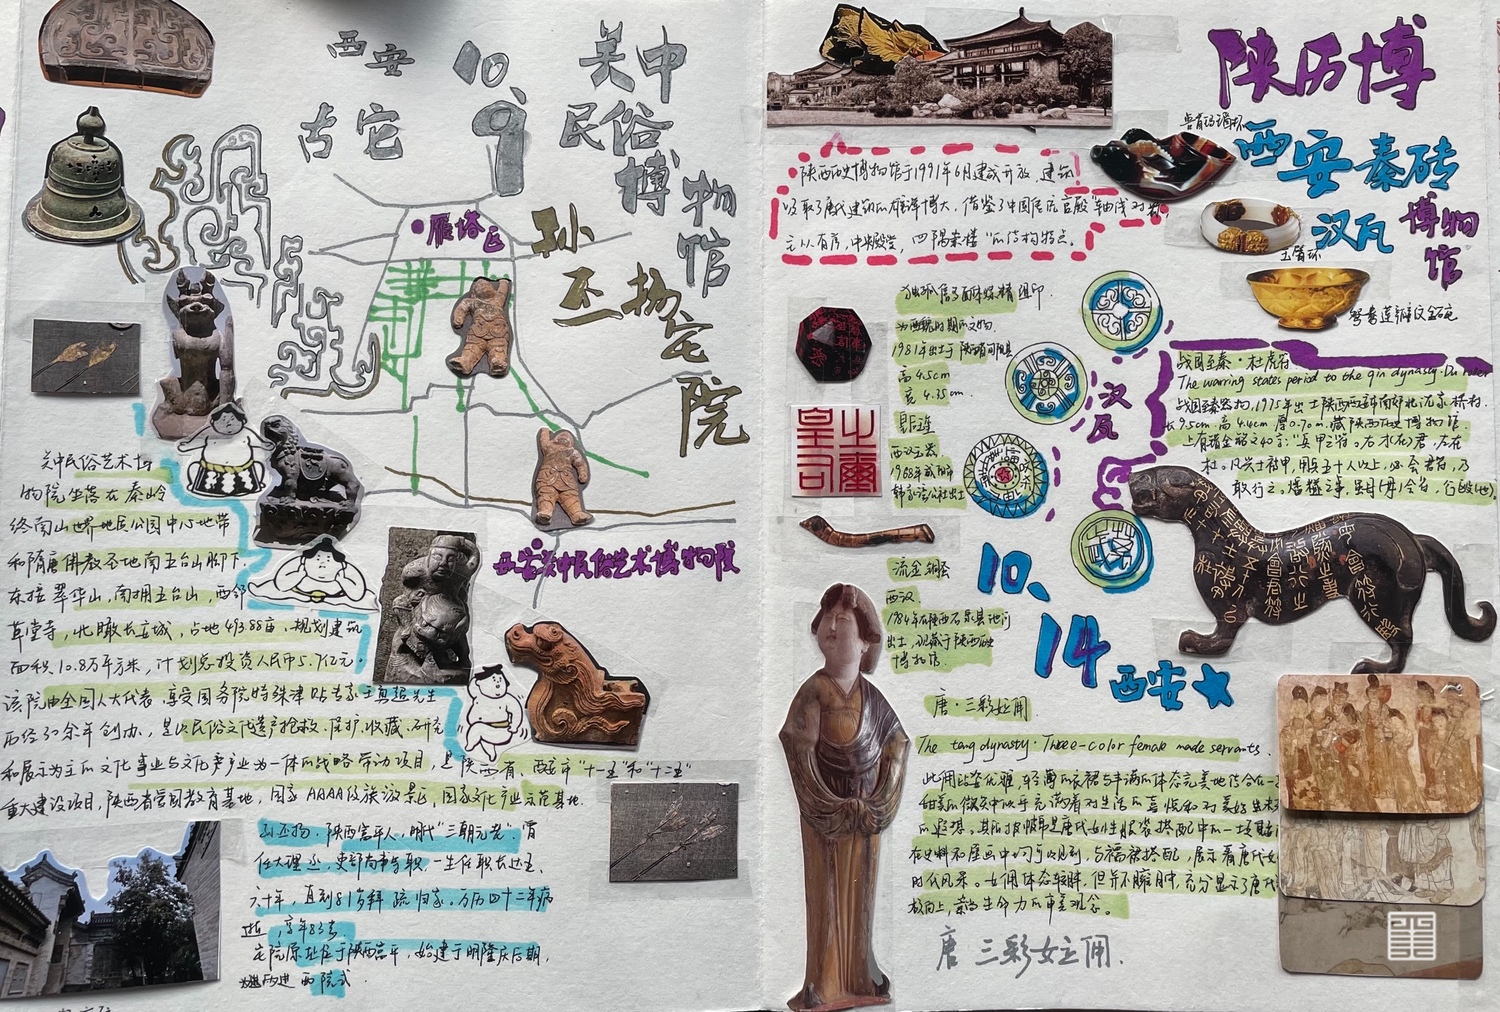 西安
10.9
古宅
关中
民俗
博
物
馆
雁塔区
孙
丕扬
宅
院
西安关中民俗艺术博物院
关中民俗艺术博
物院坐落在秦岭
终南山世界地质公园中心地带
和隋唐佛教圣地南五台山脚下.
东接翠华山,南拥五台山,西邻
草堂寺,北瞰长安城,占地493.88亩.规划建筑
面积10.8万平方米,计划总投资人民币5.7亿元.
该院由全国人大代表,享受国务院特殊津贴专家王勇超先生
历经30余年创办,是以民俗文化遗产抢救、保护、收藏、研究
和展示为主的文化事业与文化产业为一体的战略带动项目,是陕西省、西安市"十一五"和"十二五"
重大建设项目,陕西省爱国教育基地,国家AAAA级旅游景区,国家文化产业示范基地.
孙丕扬.陕西富平人,明代"三朝元老".曾
任大理丞,吏部尚书等职.一生任职长达五、
六十年,直到81岁拜疏归家.万历四十二年病
逝,享年83岁
宅院原址位于陕西富平,始建于明隆庆后期,
陕历博
西安秦砖
汉瓦
博物
馆
兽首玛瑙杯
玉臂环
鸳鸯莲瓣纹金碗
陕西历史博物馆于1991年6月建成开放.建筑
吸取了唐代建筑的雄浑博大.借鉴了中国唐宫殿"轴线对称
主从有序,中央殿堂,四隅崇楼"的结构特点.
独孤信多面体煤精组印.
为西魏时期的文物.
1981年出土于陕西省旬阳县
高4.5cm
宽4.35cm.
皇后之玺
西汉玉器
1968年咸阳市
韩家湾公社出土
皇后之玺
汉瓦
战国至秦·杜虎符
The warring states period to the qin dynasty·Du
战国至秦器物,1975年出土陕西西安南郊北沈家桥村.
长9.5cm.高4.4cm厚0.70m.藏陕西历史博物馆.
上有错金铭文40字:"兵甲之符。右才(在)君,左在
杜。凡兴士被甲,用兵五十人以上,必会君符,乃
敢行之。燔燧之事,虽毋(母)会符,行殹(也).
流金铜蚕
西汉
1984年在陕西石泉县池河
出土,现藏于陕西历史
博物馆.
10、
14
西安
唐·三彩女立俑
The tang dynasty·Three-color female made servants.
此俑比姿优雅,轻薄的衣裙与丰满的体态完美地结合在一
甜美的微笑中似乎充满着对生活的喜悦和对美好生
的遐想.其所披帔帛是唐代女性服装搭配中的一项
在史料和壁画中均可以见到,与襦裙搭配,展示着唐代女
时代风采.女俑体态较胖,但并不臃肿,充分显示了唐代
极向上,崇尚生命力的审美观念.
唐 三彩女立俑.